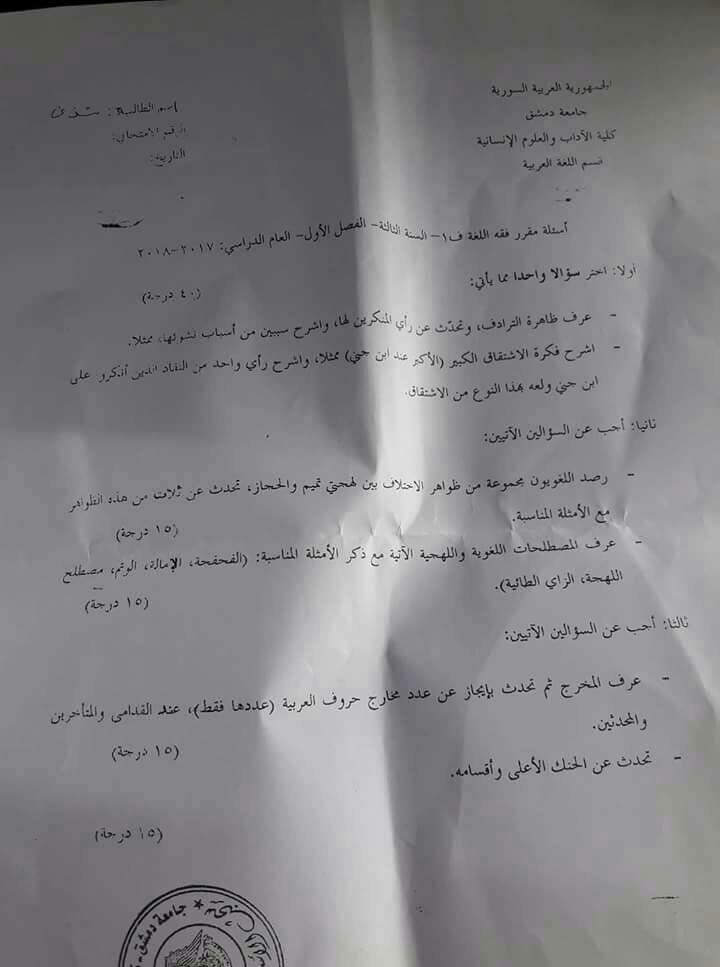 الجمهورية العربية السورية
جامعة دمشق
كلية الآداب والعلوم الإنسانية
قسم اللغة العربية
اسم الطالبة: شذى
الرقم الامتحاني:
التاريخ:
أسئلة مقرر فقه اللغة ف١- السنة الثالثة- الفصل الأول- العام الدراسي: ٢٠١٧-٢٠١٨
أولا: اختر سؤالا واحدا مما يأتي:
(٤٠ درجة)
- عرف ظاهرة الترادف، وتحدّث عن رأي المنكرين لها، واشرح سببين من أسباب نشوئها، ممثلا.
- اشرح فكرة الاشتقاق الكبير (الأكبر عند ابن جني) ممثلا، واشرح رأي واحد من النقاد الذين أنكروا على
ابن جني ولعه بهذا النوع من الاشتقاق.
ثانيا: أجب عن السؤالين الآتيين:
- رصد اللغويون مجموعة من ظواهر الاختلاف بين لهجتي تميم والحجاز، تحدث عن ثلاث من هذه الظواهر
مع الأمثلة المناسبة.
(١٥ درجة)
- عرف المصطلحات اللغوية واللهجية الآتية مع ذكر الأمثلة المناسبة: (الفحفحة، الإمالة، الوتم، مصطلح
اللهجة، الزاي الطائية).
(١٥ درجة)
ثالثا: أجب عن السؤالين الآتيين:
- عرف المخرج ثم تحدث بإيجاز عن عدد مخارج حروف العربية (عددها فقط)، عند القدامى والمتأخرين
والمحدثين.
(١٥ درجة)
- تحدث عن الحنك الأعلى وأقسامه.
(١٥ درجة)
جامعة دمشق